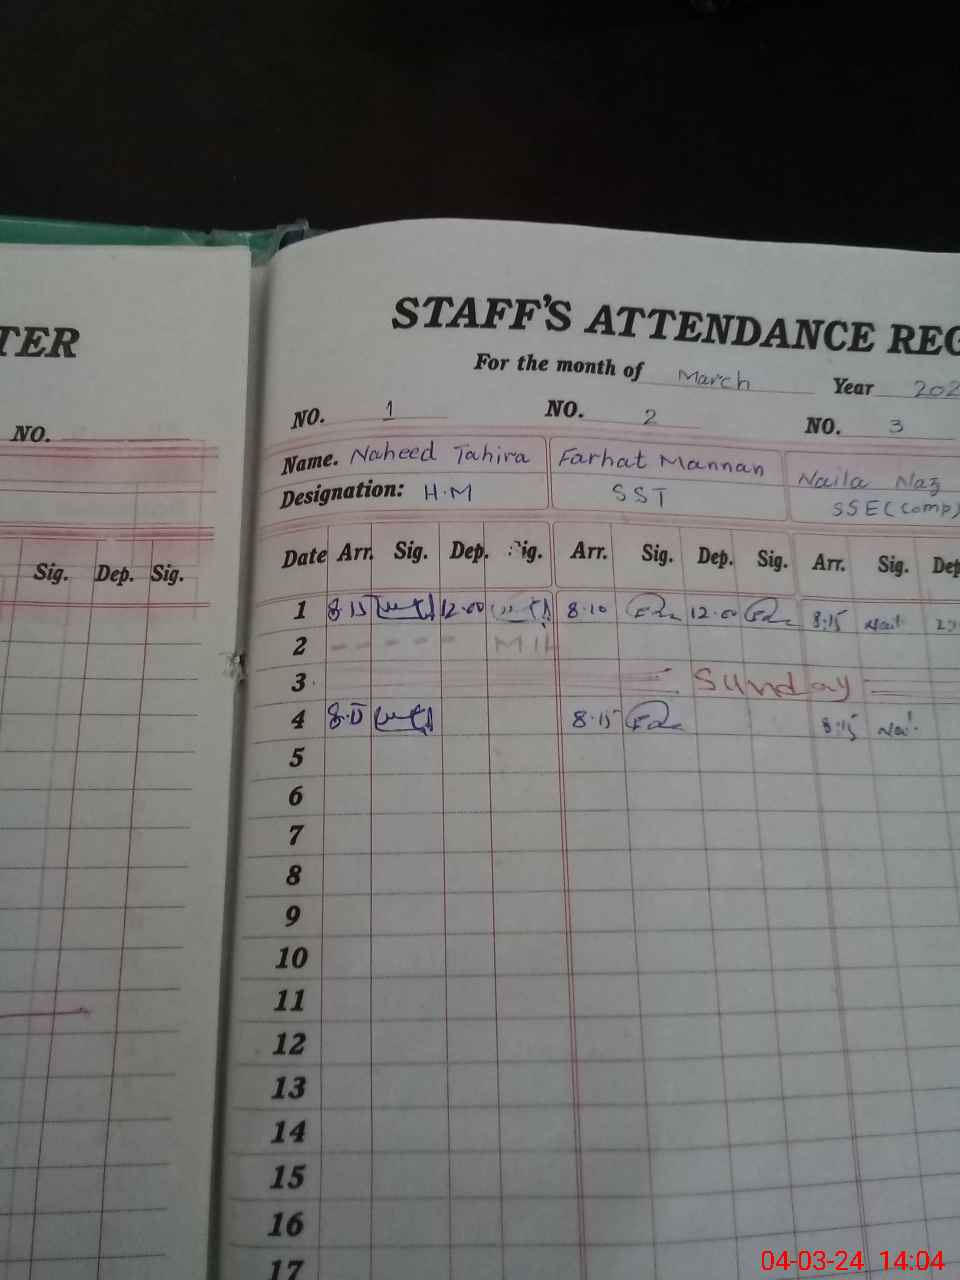 TER
STAFF'S ATTENDANCE REG
For the month of March Year 202
NO. NO. 1 NO. 2 NO. 3
Name. Naheed Tahira Farhat Mannan Naila Naz
Designation: H.M SST SSE (Comp)
Sig. Dep. Sig. Date Arr. Sig. Dep. Sig. Arr. Sig. Dep. Sig. Arr. Sig. Dep
1 8.15 12.00 8.10 12.00 8:15
2
3 Sunday
4 8.15 8.15 8:15
5
6
7
8
9
10
11
12
13
14
15
16
17
04-03-24 14:04